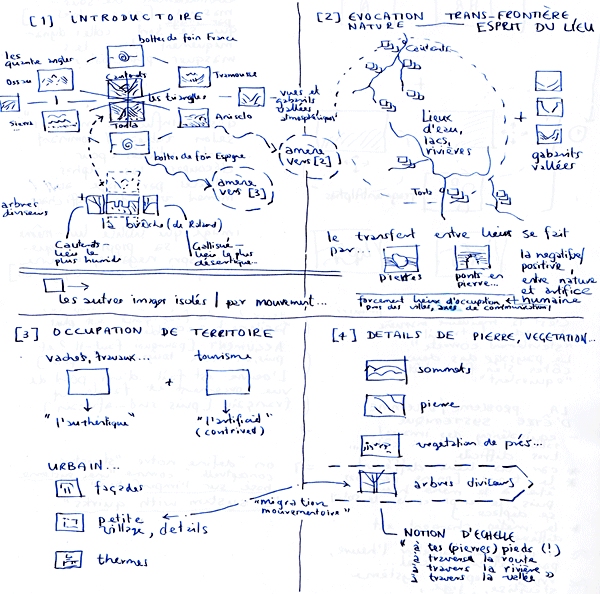 [1] INTRODUCTOIRE
bottes de foin France
les
quante angles
Ossau
Cauterets
Tramouse
les triangles
vues et
gabarits
vallées
atmosphériques
Torla
Anisclo
bottes de foin Espagne
amène
vers [2]
amène
vers [3]
arbres
diviseurs
la brèche (de Roland)
Cauterets –
lieu le
plus humide
lieu le plus
désertique...
les autres images isolés / par mouvement...
[2] EVOCATION TRANS-FRONTIÈRE
NATURE — ESPRIT DU LIEU
Cauterets
Lieux
d'eau,
lacs,
rivières
+
gabarits
vallées
Torla
le transfert entre lieux se fait
par...
pierres
ponts en
pierre...
la negative/
positive,
entre nature
et artifice
humaine
forcement lieux d'occupation et
puis des villes, axes de communication,
[3] OCCUPATION DE TERRITOIRE
vaches, travaux...
tourisme
+
"l'authentique"
"l'artificiel"
(contrived)
URBAIN...
façades
petite
village, details
thermes
"migration
mouvementoire"
[4] DETAILS DE PIERRE, VEGETATION...
sommets
pierre
vegetation de prés...
arbres diviseurs
NOTION D'ECHELLE
" à tes (pierres) pieds (!)
à traverse la route
à travers la rivière
à travers la vallée "